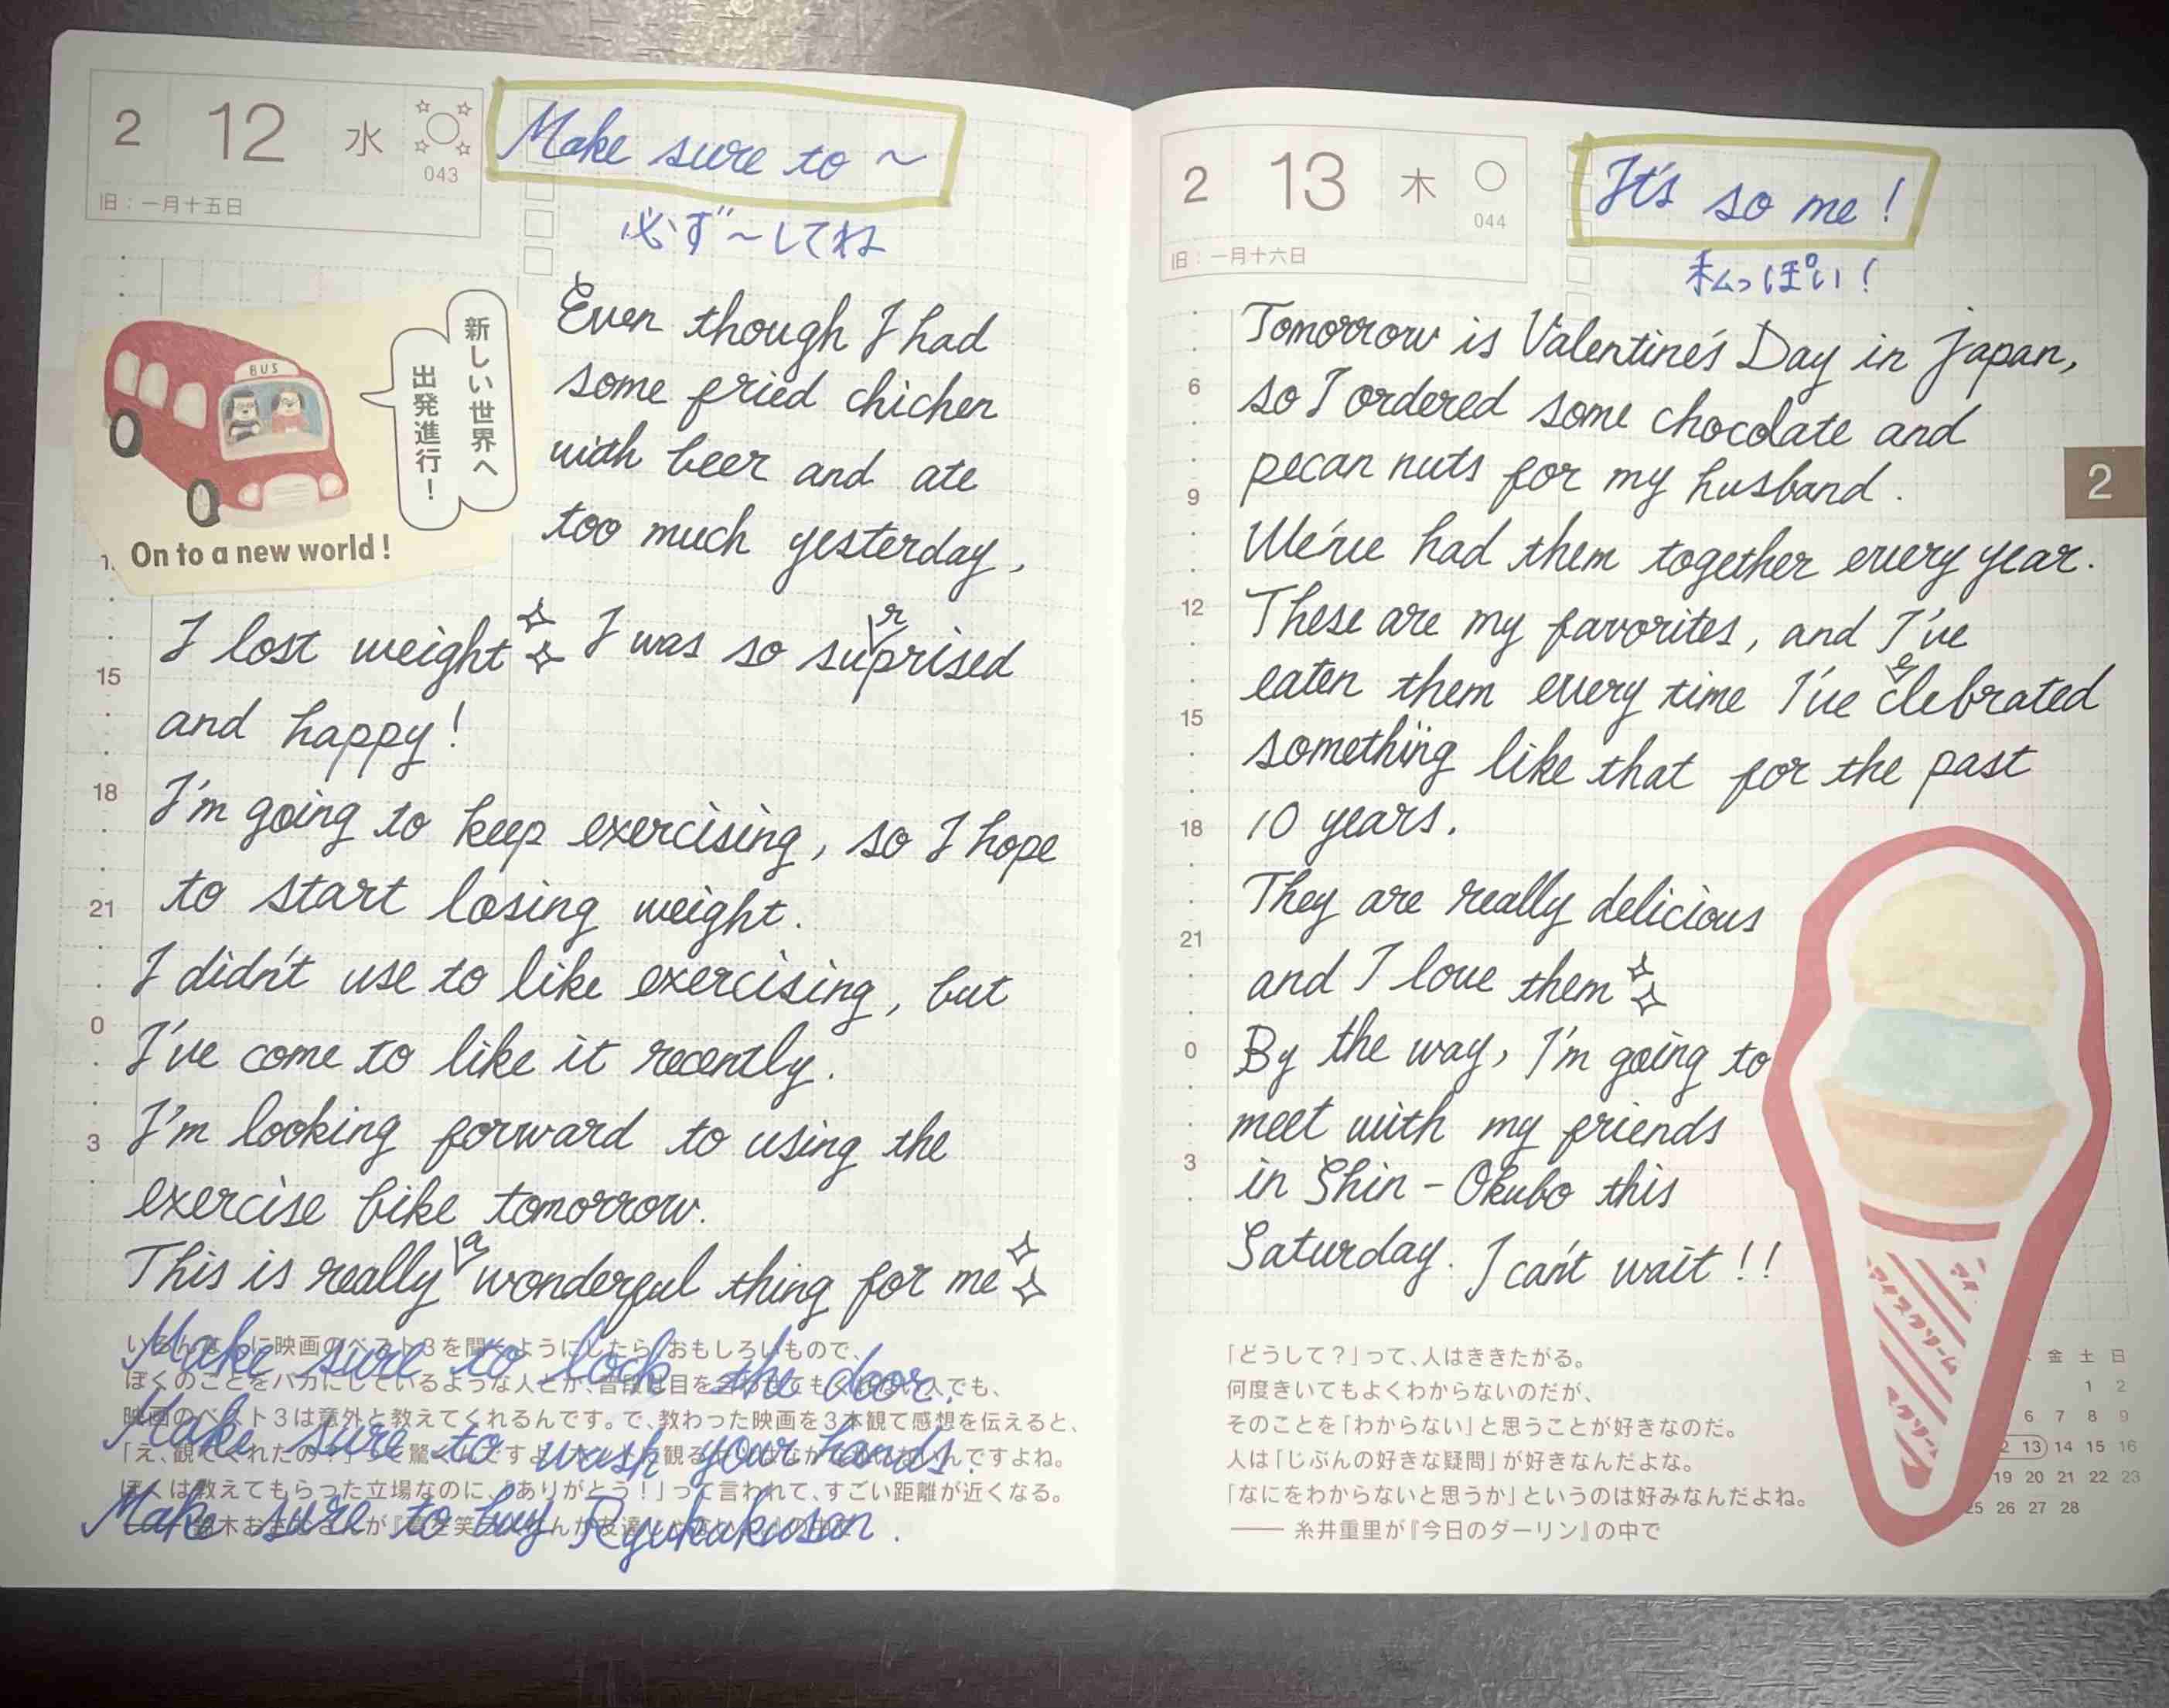 2 12 水
043
旧：一月十五日
Make sure to ~
必ず~してね
BUS
新しい世界へ
出発進行！
On to a new world!
Even though I had
some fried chicken
with beer and ate
too much yesterday,
I lost weight I was so surprised
and happy!
I'm going to keep exercising, so I hope
to start losing weight.
I didn't use to like exercising, but
I've come to like it recently.
I'm looking forward to using the
exercise bike tomorrow.
This is really a wonderful thing for me
15
18
21
0
3
Make sure to lock the door.
Make sure to wash your hands.
Make sure to buy Ryukakusan.
に映画のベスト3を聞くようにしたら、おもしろいもので、
ぼくのことをバカにしているような人とか、普段は目を合わせてもくれない人でも、
映画のベスト3は意外と教えてくれるんです。で、教わった映画を3本観て感想を伝えると、
「え、観てくれたの？」って驚くんですよ。
ですよね。
ぼくは教えてもらった立場なのに、「ありがとう！」って言われて、すごい距離が近くなる。
2 13 木
044
旧：一月十六日
It's so me!
私っぽい！
Tomorrow is Valentine's Day in Japan,
so I ordered some chocolate and
pecan nuts for my husband.
We've had them together every year.
These are my favorites, and I've
eaten them every time I've celebrated
something like that for the past
10 years.
They are really delicious
and I love them
By the way, I'm going to
meet with my friends
in Shin-Okubo this
Saturday. I can't wait!!
6
9
12
15
18
21
0
3
2
アイスクリーム
アイ
スクリーム
「どうして？」って、人はききたがる。
何度きいてもよくわからないのだが、
そのことを「わからない」と思うことが好きなのだ。
人は「じぶんの好きな疑問」が好きなんだよな。
「なにをわからないと思うか」というのは好みなんだよね。
—— 糸井重里が『今日のダーリン』の中で
金 土 日
1 2
6 7 8 9
13 14 15 16
19 20 21 22 23
25 26 27 28